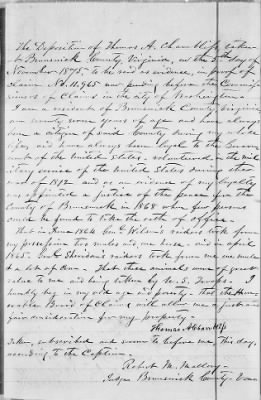 The Deposition of Thomas A. Chambliss taken
in Brunswick County, Virginia, on the 5th day of
November 1875, to be used as evidence, in proof of
Claim No. 11.965 now pending before the Commis-
sioners of Claims in the city of Washington.
I am a resident of Brunswick County Virginia
am seventy years of age and have always
been a citizen of said County during my whole
life, and have always been loyal to the Govern
ment of the United States. volunteered in the mil
itary service of the United States during the
war of 1812 and as an evidence of my loyalty
was appointed a justice of the peace for the
County of Brunswick in 1865 when few persons
could be found to take the oath of office.
That in June 1864 Genl Wilson's raiders took from
my possession two mules and one horse and in april
1865. Genl Sheridan's raiders took from me one mule
& a lot of corn. That these animals were of great
value to me and being taken by U.S. Troops. I
humbly beg in my old age and poverty that the Hon
orable Board of Claims will allow me a just and
fair consideration for my property.
Thomas A Chambliss
Taken, subscribed and sworn to before me this day,
according to the Caption.
Robert M. Mallory
Judge Brunswick County